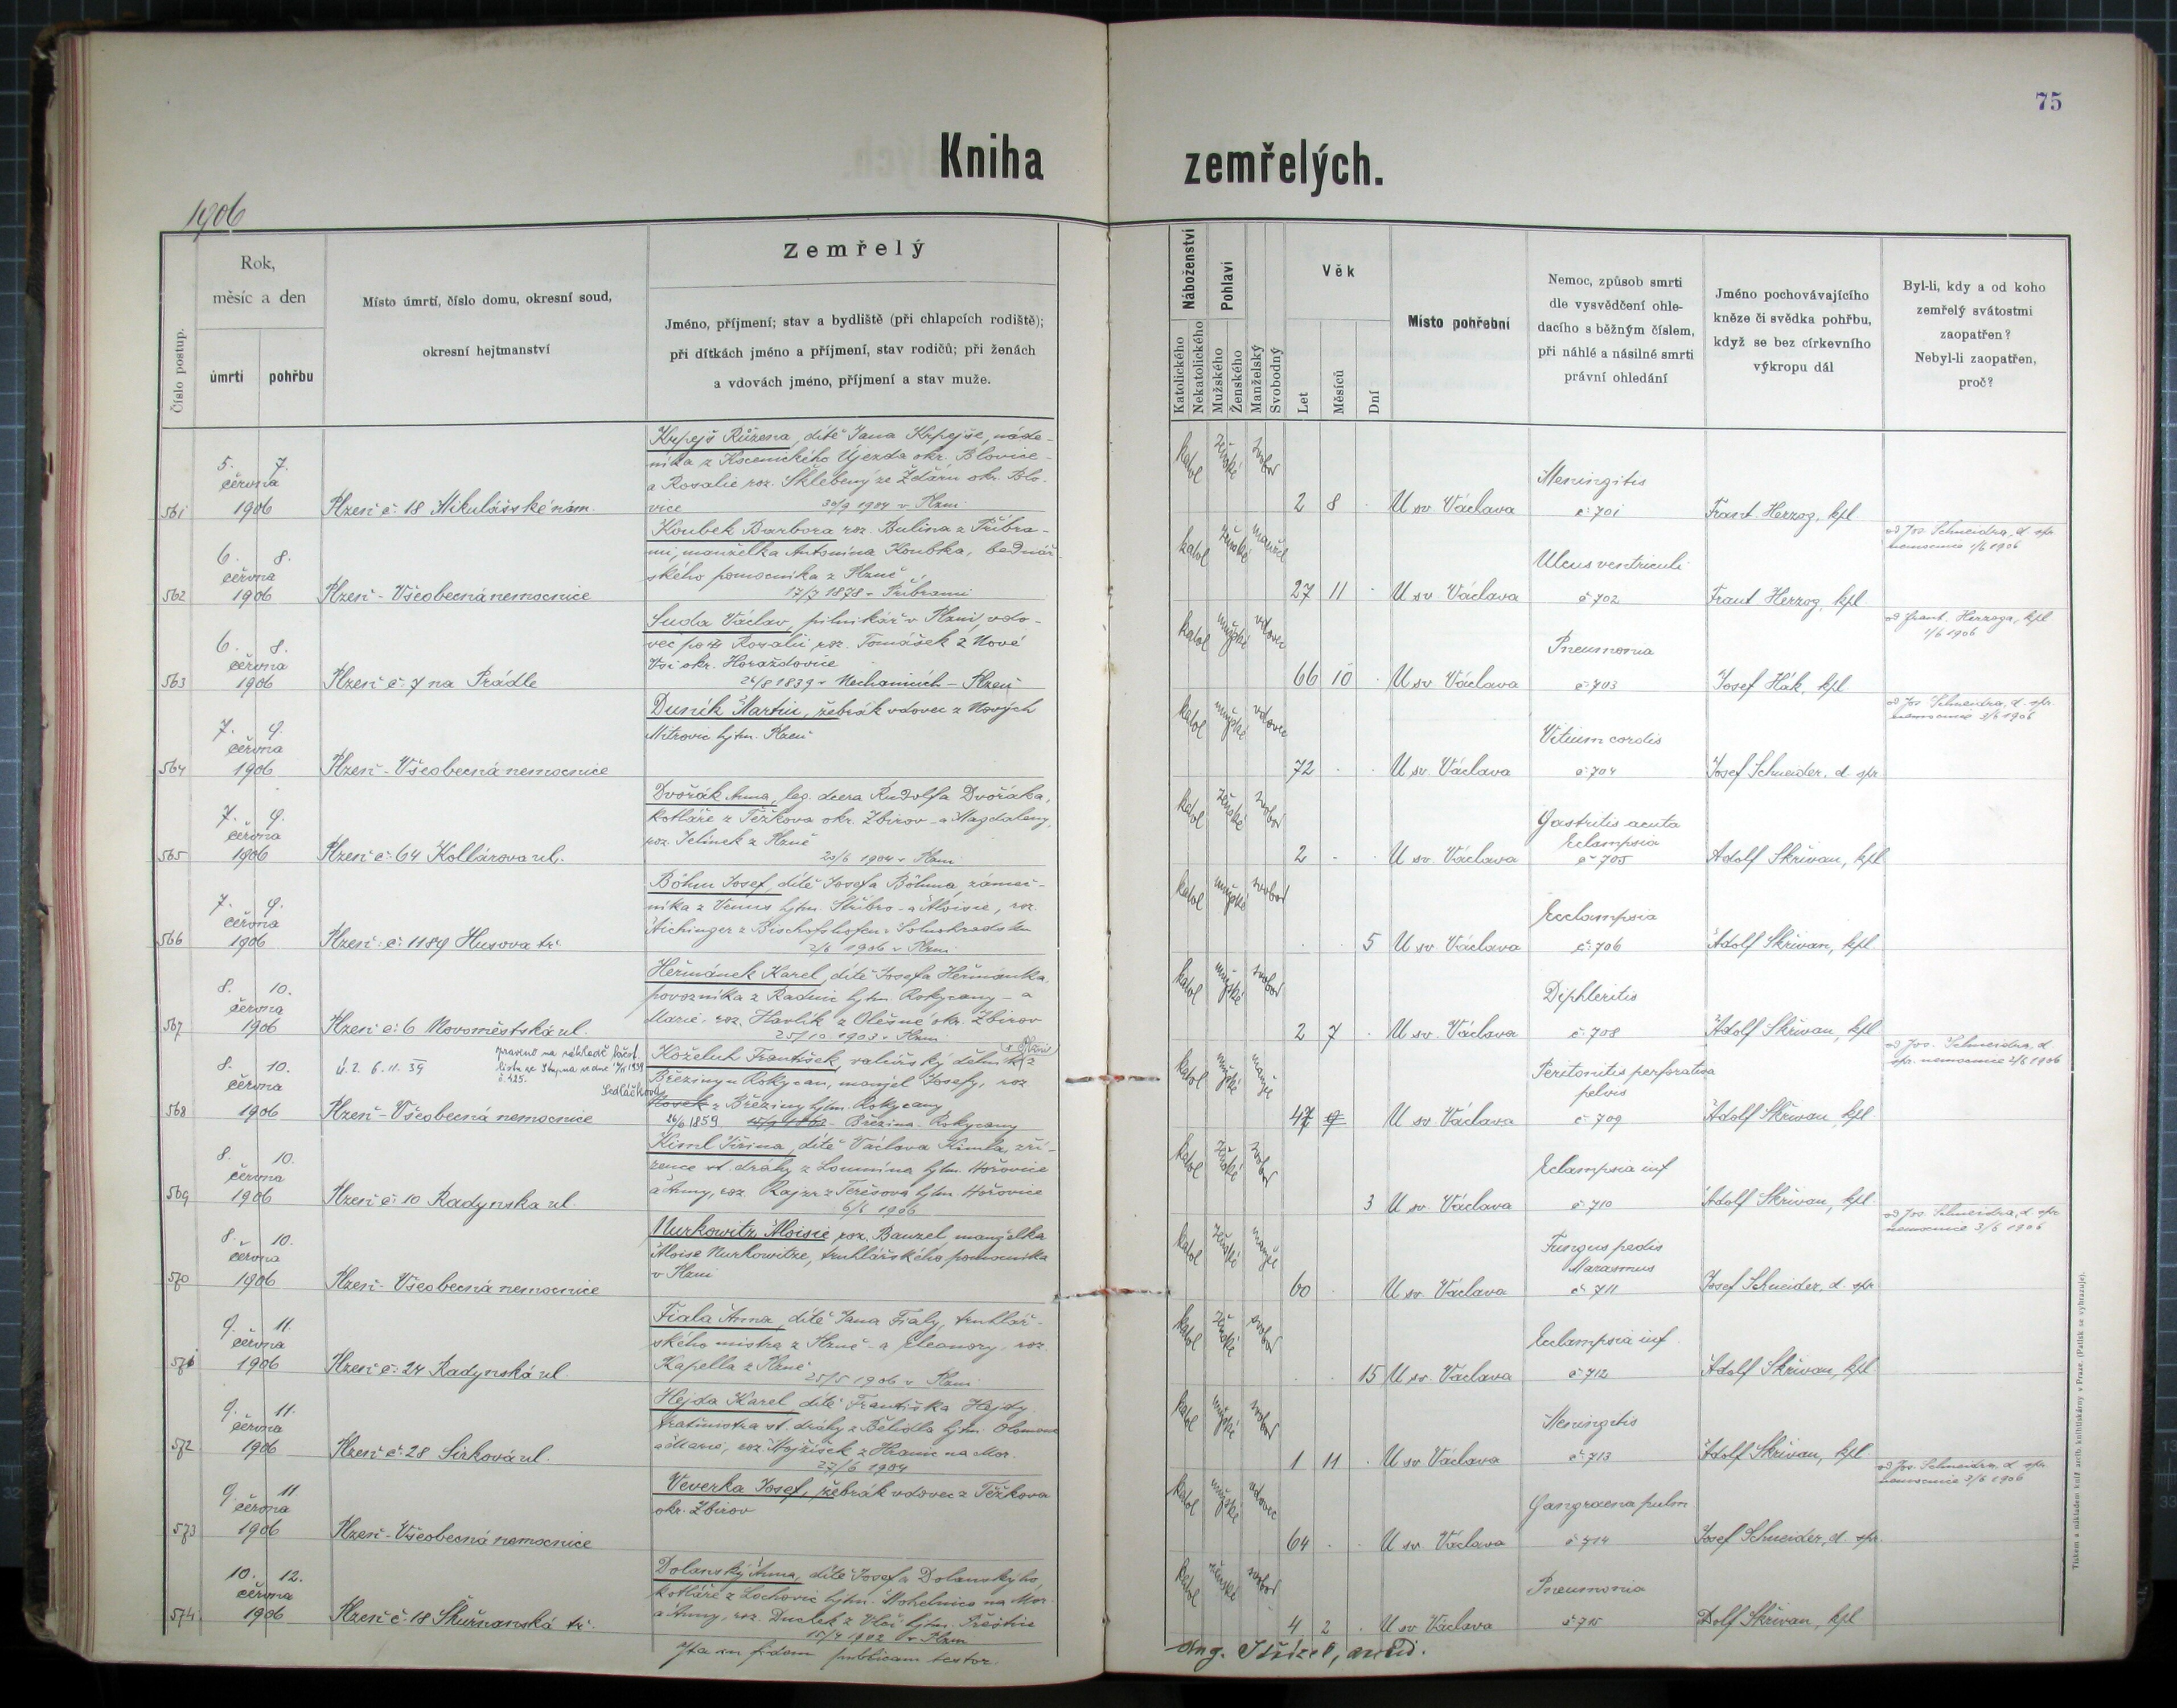 75
Kniha zemřelých.
1906
Číslo postup.
Rok,
měsíc a den
úmrtí
pohřbu
Místo úmrtí, číslo domu, okresní soud,
okresní hejtmanství
Zemřelý
Jméno, příjmení; stav a bydliště (při chlapcích rodiště);
při dítkách jméno a příjmení, stav rodičů; při ženách
a vdovách jméno, příjmení a stav muže.
Náboženství
Katolického
Nekatolického
Pohlaví
Mužského
Ženského
Manželský
Svobodný
Věk
Let
Měsíců
Dní
Místo pohřební
Nemoc, způsob smrti
dle vysvědčení ohle-
dacího s běžným číslem,
při náhlé a násilné smrti
právní ohledání
Jméno pochovávajícího
kněze či svědka pohřbu,
když se bez církevního
výkropu dál
Byl-li, kdy a od koho
zemřelý svátostmi
zaopatřen?
Nebyl-li zaopatřen,
proč?
561
5. 7.
června
1906
Plzeň č. 18 Mikulášské nám.
Krpejš Růžena, dítě Jana Krpejše, náde-
níka z Kscenického Újezda okr. Blovice -
a Rosalie roz. Šklebený ze Ždáru okr. Blo-
vice 30/9 1904 v Plzni
katol ženské svobod
2 8 U sv. Václava
Meningitis
č. 701
Frant. Herzog, kpl
562
6. 8.
června
1906
Plzeň - Všeobecná nemocnice
Koubek Barbora roz. Bulina z Příbra-
mi, manželka Antonína Koubka, bednář-
ského pomocníka z Plzně
17/7 1878 v Příbrami
katol ženské manžel
27 11 U sv Václava
Ulcus ventriculi
č 702
Frant Herzog, kpl
od Jos. Schneidra, d. spr.
nemocnice 1/6 1906
563
6. 8.
června
1906
Plzeň č. 7 na Prádle
Suda Václav, pilnikář v Plzni, vdo-
vec po Rosalii, roz. Tomášek z Nové
Vsi okr. Horažďovice
26/8 1839 v Nechanicích - Plzeň
katol mužské vdovec
66 10 U sv Václava
Pneumonia
č 703
Josef Hák, kpl
od Frant. Herzoga, kpl
1/6 1906
564
7. 9.
června
1906
Plzeň - Všeobecná nemocnice
Duník Martin, žebrák vdovec z Nových
Mitrovic hjtm. Plzeň
katol mužské vdovec
72 U sv. Václava
Vitium cordis
č 704
Josef Schneider, d. spr
od Jos Schneidra, d. spr.
nemocnice 3/6 1906
565
7. 9.
června
1906
Plzeň č. 64 Kollárova ul.
Dvořák Anna, leg. dcera Rudolfa Dvořáka,
kotláře z Těžkova okr. Zbirov - a Magdaleny,
roz. Jelínek z Plzně
20/6 1904 v Plzni
katol ženské svobod
2 U sv. Václava
Gastritis acuta
Eclampsia
č 705
Adolf Skřivan, kpl
566
7. 9.
června
1906
Plzeň č. 1189 Husova tř.
Böhm Josef, dítě Josefa Böhma, zámeč-
níka z Venus hjtm. Stříbro - a Aloisie, roz.
Aichinger z Bischofshofen v Solnohradsku
2/6 1906 v Plzni
katol mužské svobod
5 U sv Václava
Ecclampsia
č. 706
Adolf Skřivan, kpl
567
8. 10.
června
1906
Plzeň č. 6 Novoměstská ul.
Heřmánek Karel, dítě Josefa Heřmánka
povozníka z Radnic hjtm. Rokycany - a
Marie, roz. Havlík z Olešné okr. Zbirov
25/10 1903 v Plzni
katol mužské svobod
2 7 U sv. Václava
Diphteritis
č. 708
Adolf Skřivan, kpl
568
8. 10.
června
1906
Plzeň - Všeobecná nemocnice
Koželuh František, valcířský děln
Březiny u Rokycan, manžel Josefy, roz
Sedláčkova Novek z Březiny hjtm. Rokycany
26/6 1859 Březina - Rokycany
katol mužské manžel
47 9 U sv Václava
Peritonitis perforativa
pelvis
č 709
Adolf Skřivan, kpl
od Jos. Schneidra, d.
spr. nemocnice 2/6 1906
569
8. 10.
června
1906
Plzeň č. 10 Radynska ul.
Kiml Jiřina, dítě Václava Kimla, zří-
zence st. dráhy z Lounína hjtm. Hořovice
a Anny, roz. Rajzr z Terešova hjtm. Hořovice
6/6 1906
katol ženské svobod
3 U sv. Václava
Eclampsia inf
č 710
Adolf Skřivan, kpl
570
8. 10.
června
1906
Plzeň - Všeobecná nemocnice
Nurkowitz Aloisie roz. Bauzel, manželka
Aloise Nurkowitze, truhlářského pomocníka
v Plzni
katol ženské manžel
60 U sv. Václava
Fungus pedis
Marasmus
č. 711
Josef Schneider, d. spr
od Jos. Schneidra, d. spr
nemocnice 3/6 1906
571
9. 11.
června
1906
Plzeň č. 24 Radynská ul.
Fiala Anna, dítě Jana Fialy, truhlář-
ského mistra z Plzně - a Eleonory, roz.
Kapella z Plzně
25/5 1906 v Plzni
katol ženské svobod
15 U sv. Václava
Ecclampsia inf.
č. 712
Adolf Skřivan, kpl
572
9. 11.
června
1906
Plzeň č. 28 Sirková ul.
Hejda Karel dítě Františka Hejdy,
tratmistra st. dráhy z Bělidla hjtm. Olomouc
a Marie, roz. Mojžíšek z Hranic na Mor.
27/6 1904
katol mužské svobod
1 11 U sv. Václava
Meningitis
č. 713
Adolf Skřivan, kpl.
573
9. 11
června
1906
Plzeň - Všeobecná nemocnice
Veverka Josef, žebrák vdovec z Těžkova
okr. Zbirov
katol mužské vdovec
64 U sv. Václava
Gangraena pulm
č 714
Josef Schneider, d. spr.
od Jos. Schneidra, d. spr.
nemocnice 3/6 1906
574
10. 12.
června
1906
Plzeň č. 18 Skurňanská tř.
Dolanský Anna, dítě Josefa Dolanskýho,
kotláře z Lochovic hjtm. Mohelnice na Mor.
a Anny, roz. Duchek z Vlčí hjtm. Přeštice
15/4 1902 v Plzni
katol ženské svobod
4 2 U sv Václava
Pneumonia
č 715
Dolf Skřivan, kpl
Ita in fidem publicam testor
Tiskem a nákladem kníž. arcib. knihtiskárny v Praze. (Patisk se vyhrazuje).